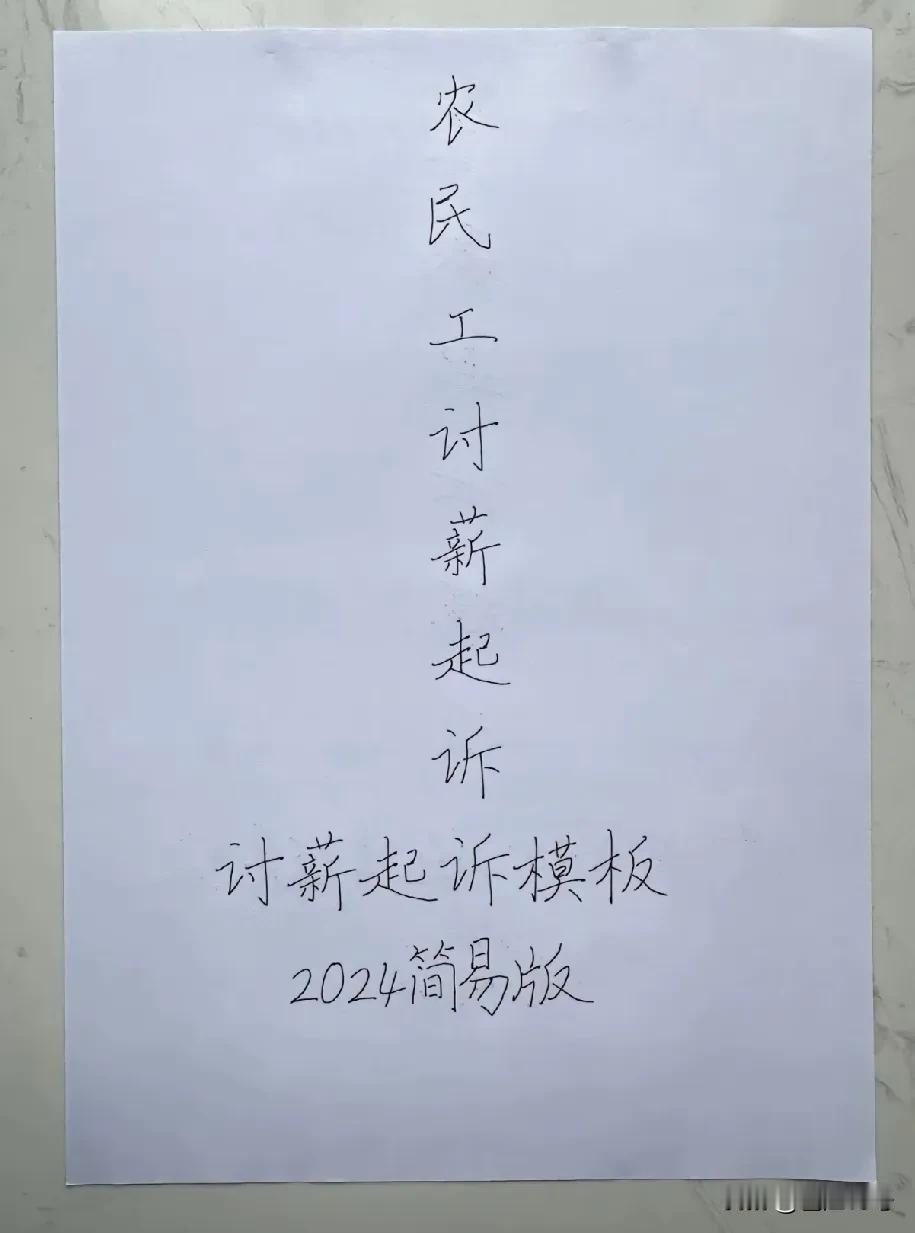 农
民
工
讨
薪
起
诉
讨薪起诉模板
2024简易版